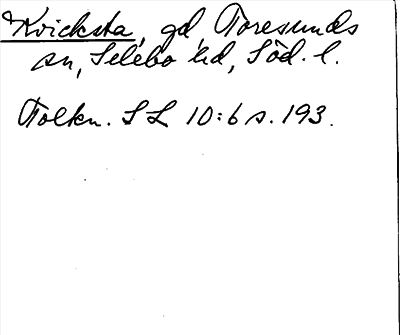 Kvicksta, gd, Toresunds
sn, Selebo hd, Söd. l.
Tolkn. SL 10:6 s. 193.